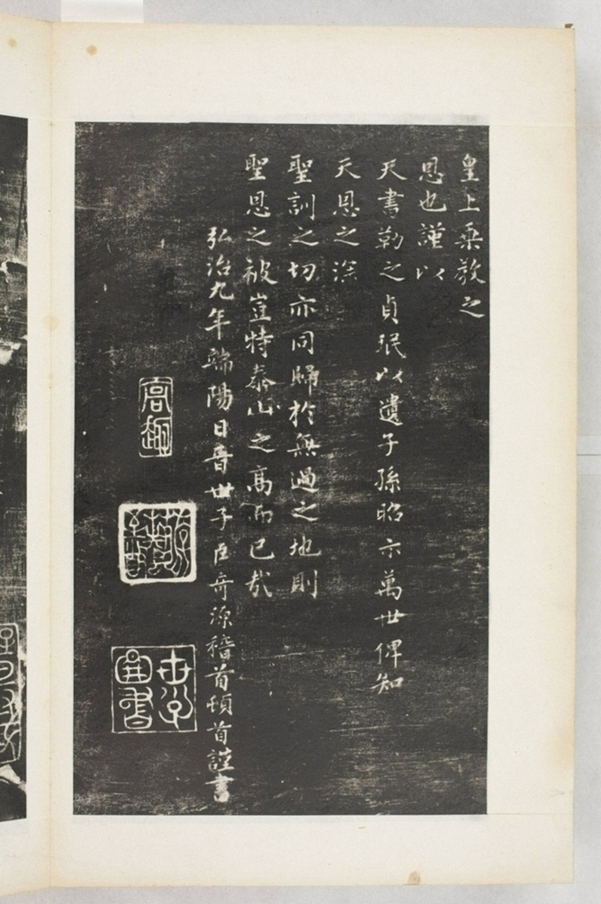 皇上桒教之
恩也謹以
天書勒之貞珉以遺子孫昭示萬世俾知
天恩之深
聖訓之切亦同歸於無過之地則
聖恩之被豈特泰山之高而已哉
弘治九年端陽日晉世子臣奇源稽首頓首謹書
高趣
世子
圖書